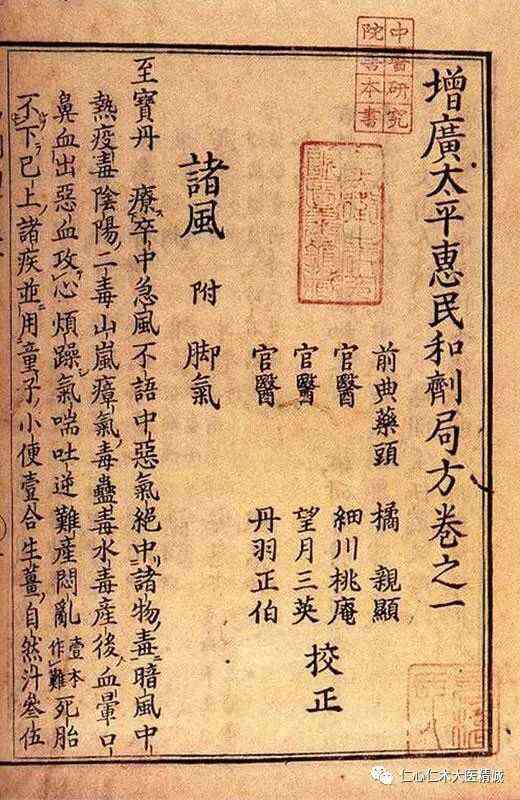 增廣太平惠民和劑局方卷之一
前典藥頭 橘 親顯
官醫 細川桃庵
官醫 望月三英
官醫 丹羽正伯
校正
諸風 附 脚氣
至寶丹 療卒中急風不語中惡氣絕中諸物毒暗風中
熱疫毒陰陽二毒山嵐瘴氣毒蠱毒水毒產後血暈口
鼻血出惡血攻心煩躁氣喘吐逆難產悶亂壹本作難死胎
不下已上諸疾並用童子小便壹合生薑自然汁叄伍
中醫研究
院 本書
仁心仁术大医精诚